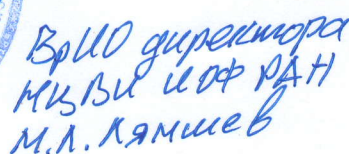 ВрИО директора
НЦВИ ИОФ РАН
М.Л. Лямшев